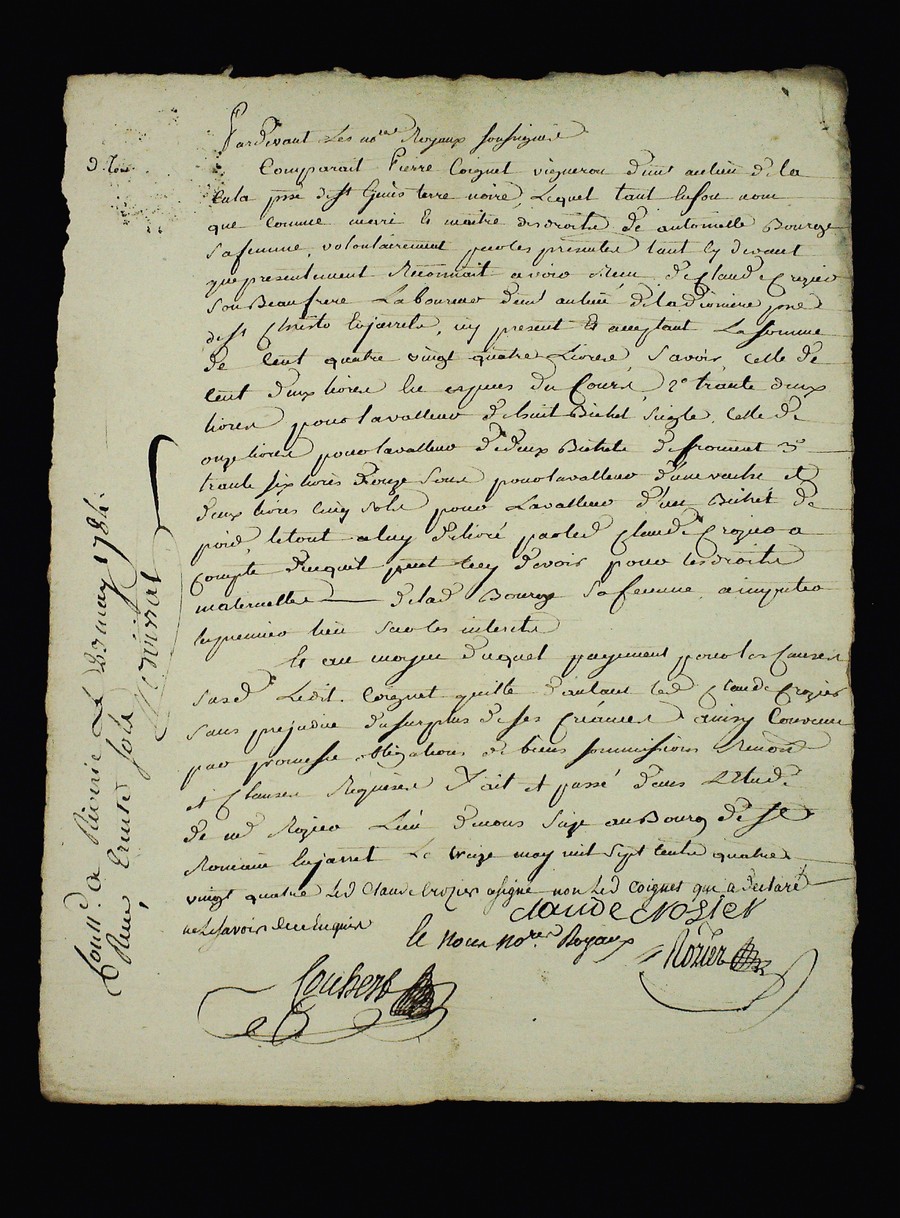 Pardevant Les no.res Royaux soussignés
Comparait Pierre Coignet vigneron demt au lieu de la
psse de st Genis terre noire, Lequel tant en son nom
que comme mari Et maitre des droits de antoinette Bouroze
sa femme, volontairement par les presentes tant cy devant
que presentement Reconnait avoir Receu de Claude Crozier
son Beaufrere Laboureur demt au lieu de psse
de st Christo En jarrets, icy present Et acceptant La somme
de Cent quatre vingt quatre Livres Savoir Celle de
Cent deux livres En especes du Cours, 2° trante deux
livres pour la valleur de huit Bichet seigle, Celle de
onze livres pour la valleur de deux Bichets de froment 3°
trante six livres sous pour la valleur d'une vache et
deux livres Cinq sols pour La valleur d'un Bichet de
poid, le tout a luy délivré par led Claude Crozier a
Compte de ce qu'il peut luy devoir pour les droits
maternelles de lad Bouroze sa femme a imputer
En premier lieu sur les interets
Et au moyen duquel payement pour les Causes
susd. Ledit Coignet quitte d'autant led Claude Crozier
sans prejudice du surplus de ses Créances ainsy Convenu
par promesse obligations de biens soummissions Renon.
et Clauses Requises Fait et passé dans L'Etude
de me Rozier L'un de nous sise au Bourg de St
Romain En jarret Le treize may mil sept cents quatre
vingt quatre Led Claude Crozier a signé non Led Coignet qui a declaré
ne Le savoir de ce Enquis
claude crosier
le nous no.res Royaux
Rozier
Joubert
Conn.é a Riverie Le 23 may 1784.
Reçu trente sols